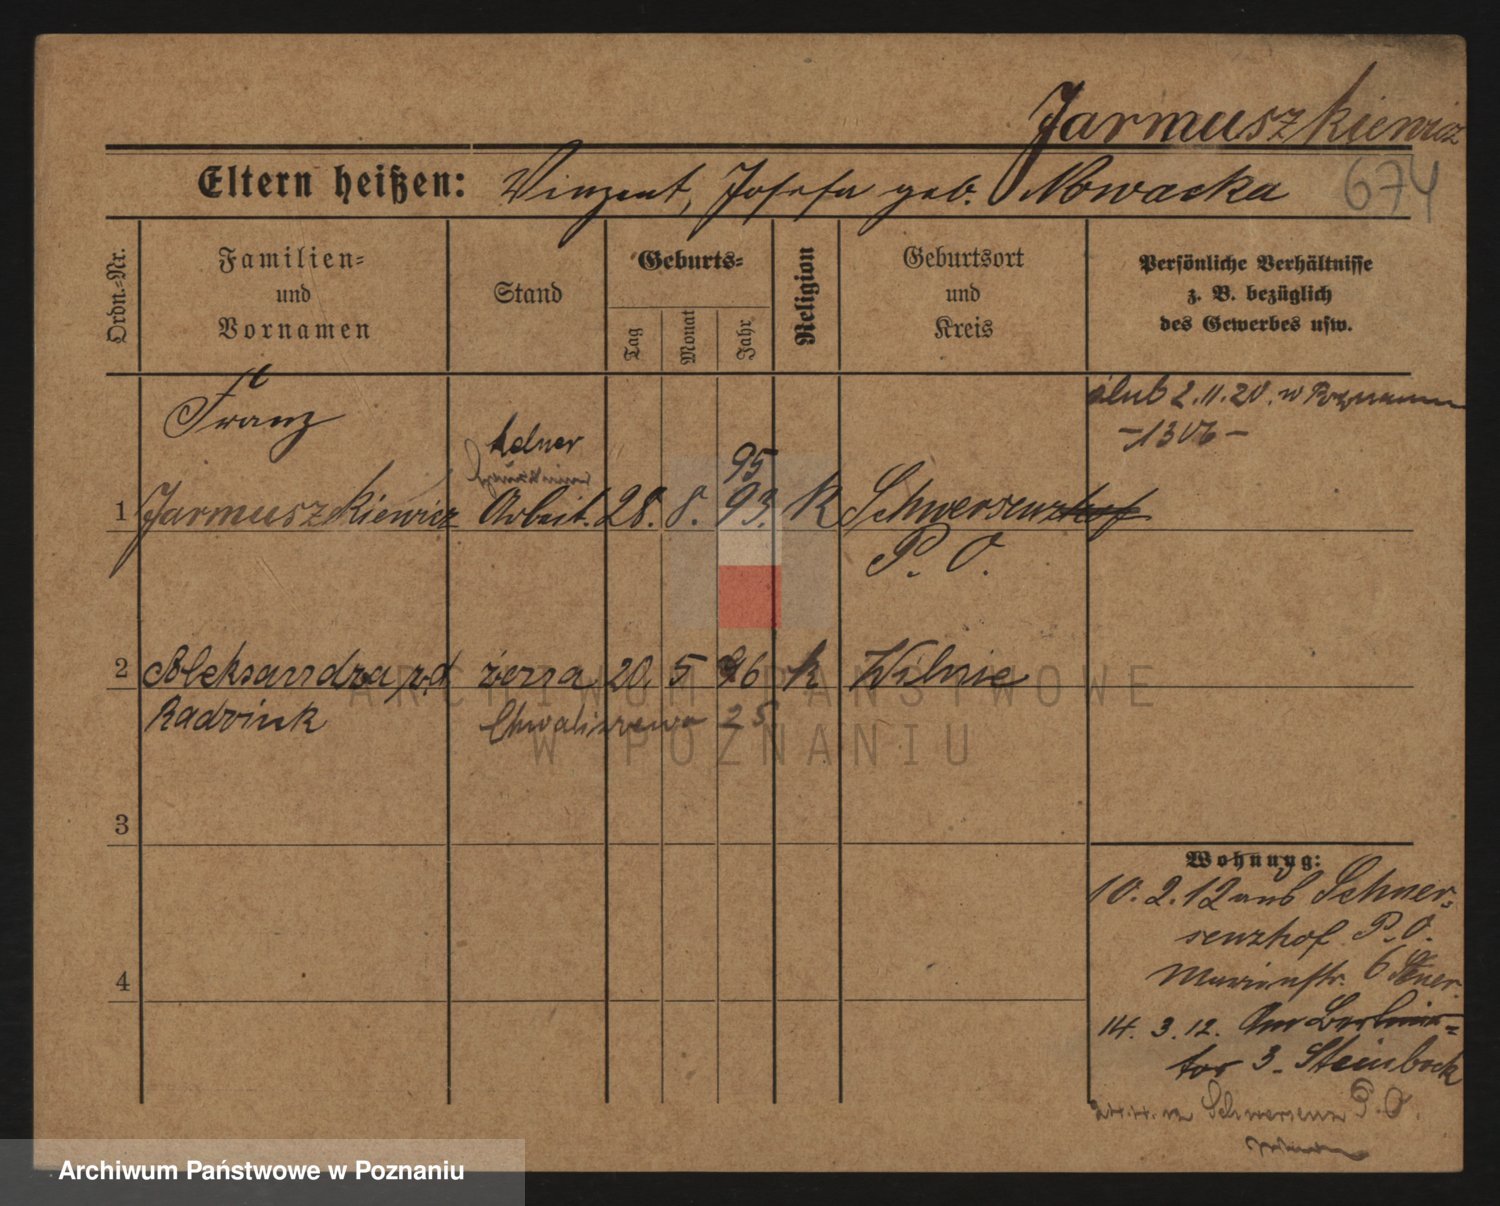 Jarmuszkiewicz
Eltern heißen: Vinzent, Josefa geb. Nowacka
674
Ordn.-Nr.
Familien-
und
Vornamen
Stand
Geburts-
Tag
Monat
Jahr
Religion
Geburtsort
und
Kreis
Persönliche Verhältnisse
z. B. bezüglich
des Gewerbes usw.
Franz
ślub 2.11.20. w Poznaniu
-1306-
95
1 Jarmuszkiewicz Arbeit. 28. 8. 93. K Schwersenzhof
P. O.
2 Aleksandra z d żona 20. 5 96 k Wilnie
Radziuk Chwaliszewo 25
3
4
Wohnung:
10. 2. 12 aus Schwer-
senzhof P. O.
6
14. 3. 12. Am Berliner-
tor 3. Steinbock
Schwersenz P. O.
ARCHIWUM PAŃSTWOWE
W POZNANIU
Archiwum Państwowe w Poznaniu